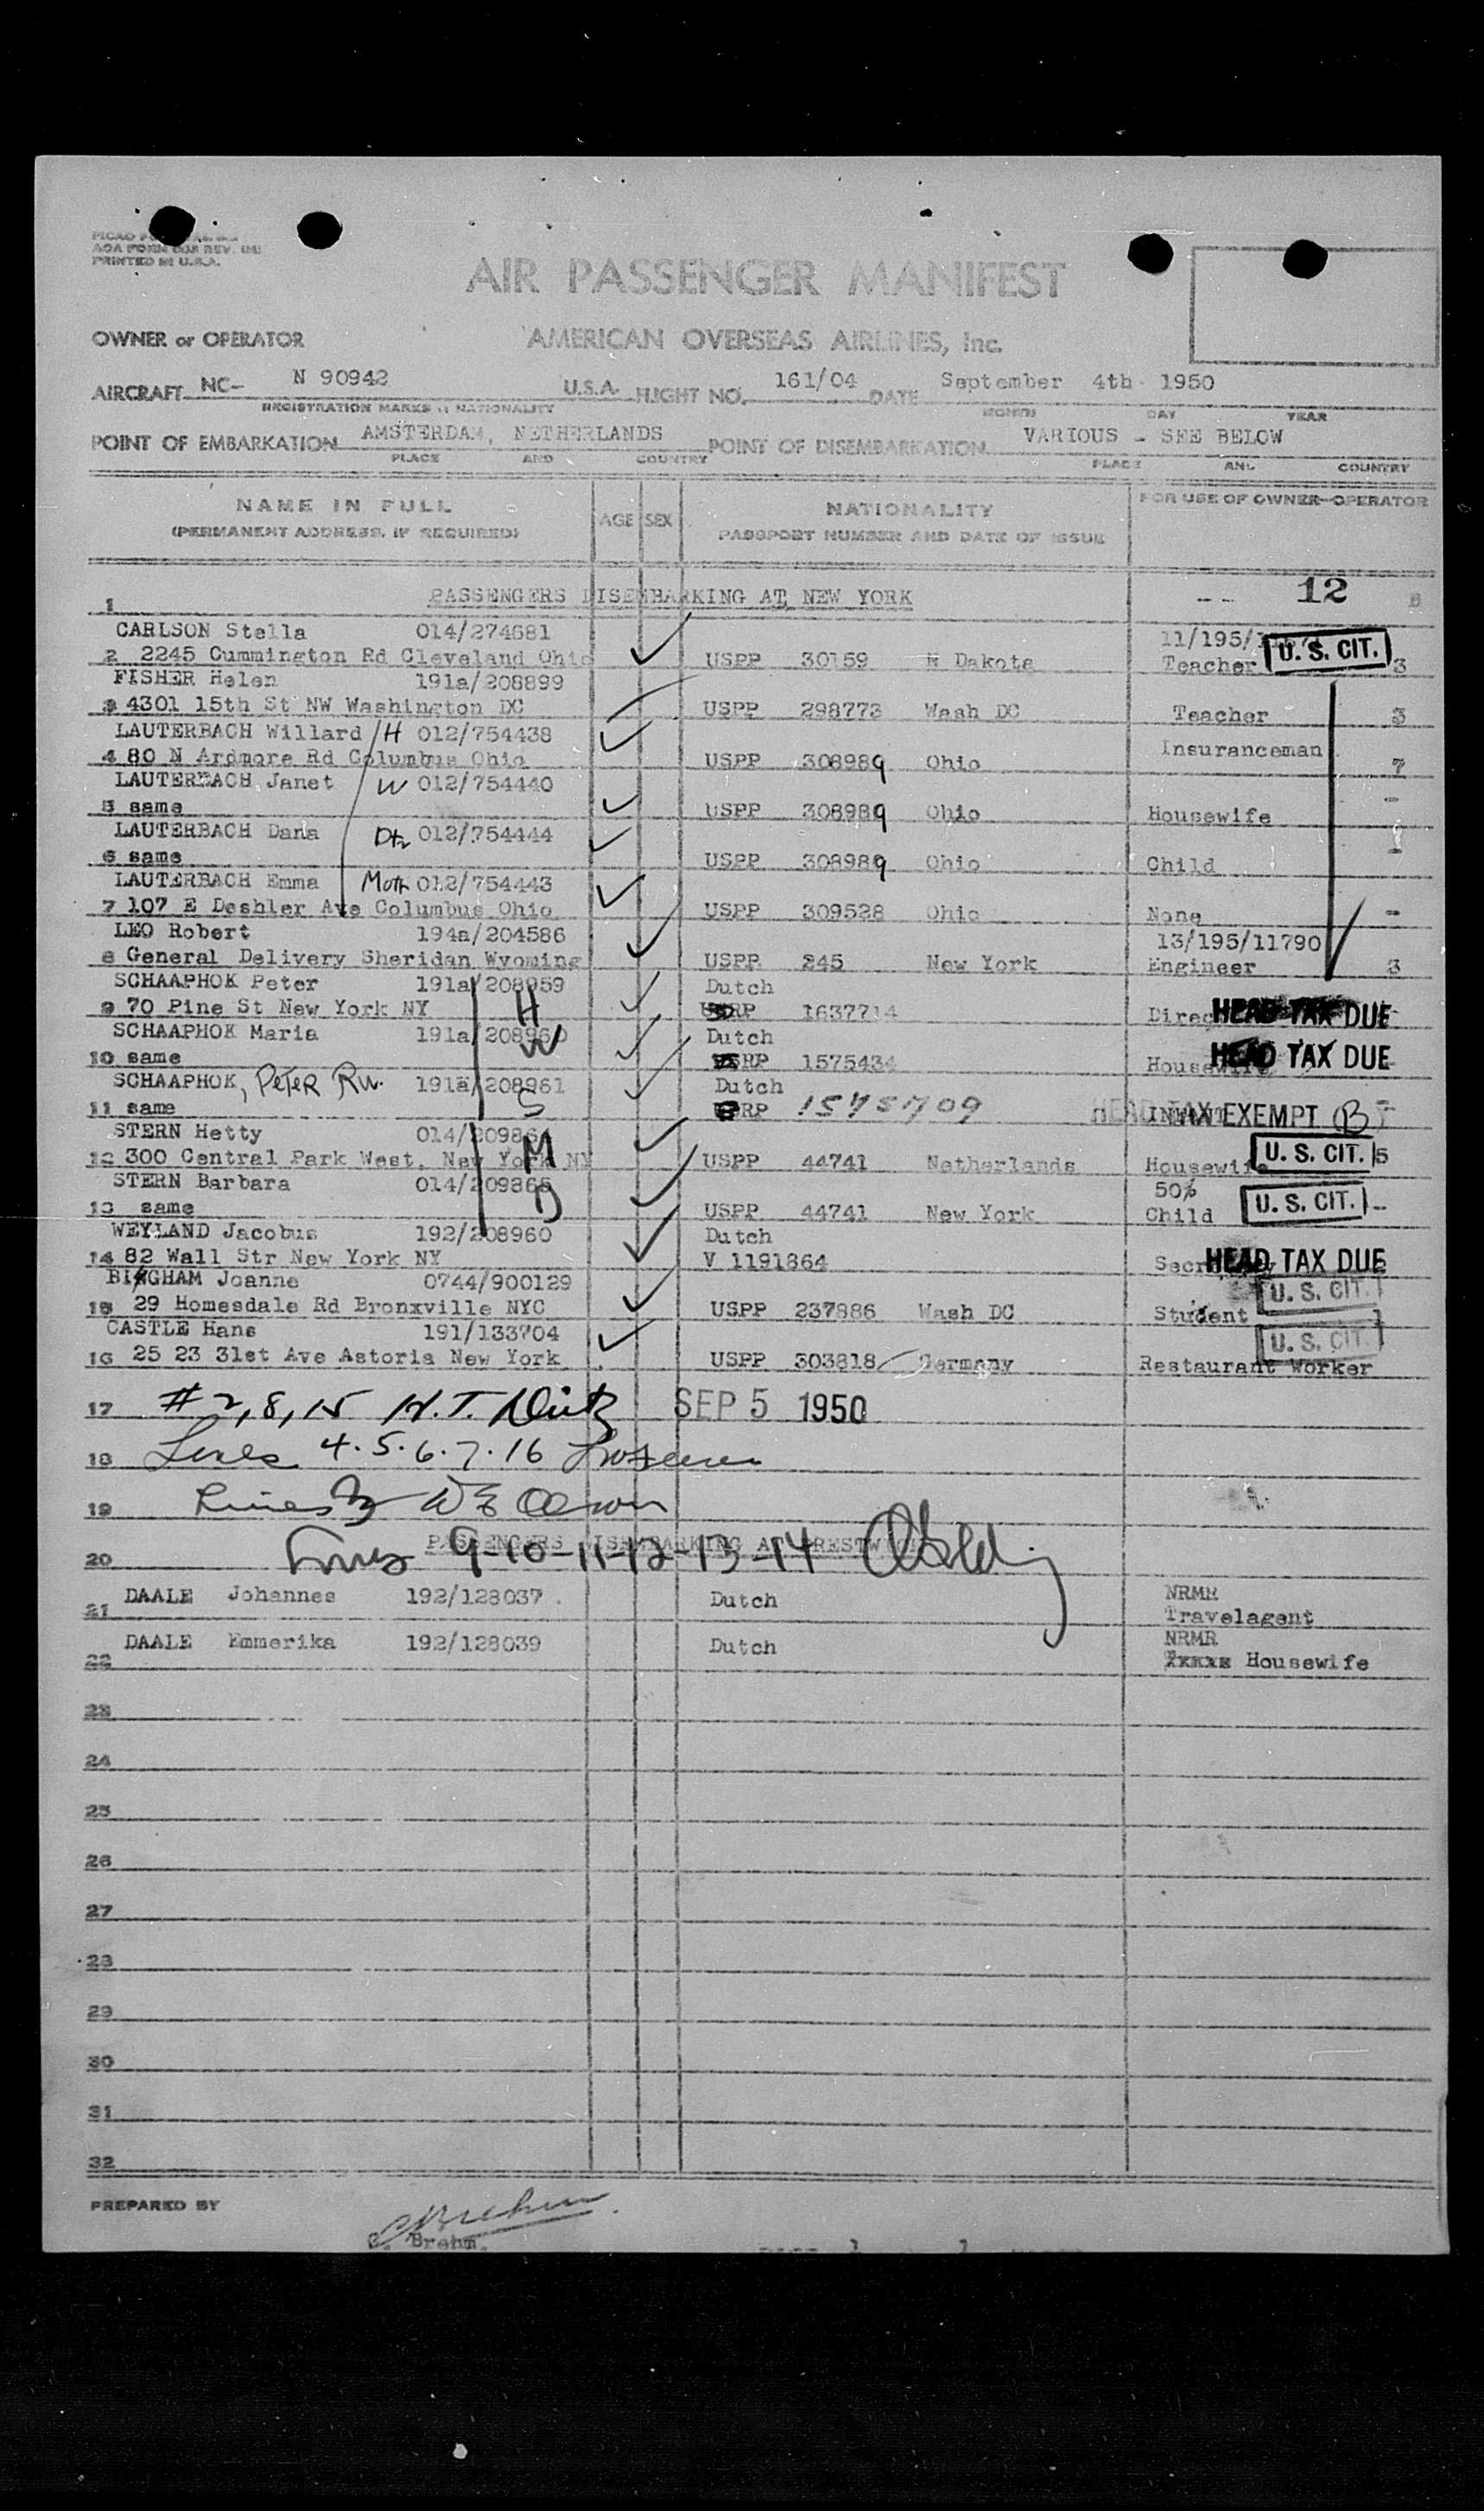 PRINTED IN U.S.A.
AIR PASSENGER MANIFEST
OWNER or OPERATOR AMERICAN OVERSEAS AIRLINES, Inc.
AIRCRAFT NC- N 90942 U.S.A. FLIGHT NO. 161/04 DATE September 4th 1950
REGISTRATION MARKS NATIONALITY MONTH DAY YEAR
POINT OF EMBARKATION AMSTERDAM, NETHERLANDS POINT OF DISEMBARKATION VARIOUS - SEE BELOW
PLACE AND COUNTRY PLACE AND COUNTRY
NAME IN FULL AGE SEX NATIONALITY FOR USE OF OWNER-OPERATOR
(PERMANENT ADDRESS, IF REQUIRED) PASSPORT NUMBER AND DATE OF ISSUE
1 PASSENGERS DISEMBARKING AT NEW YORK -- 12
CARLSON Stella 014/274681 11/195/
2 2245 Cummington Rd Cleveland Ohio USPP 30159 N Dakota Teacher U. S. CIT. 3
FISHER Helen 191a/208899
3 4301 15th St NW Washington DC USPP 298773 Wash DC Teacher 3
LAUTERBACH Willard H 012/754438 Insuranceman
4 80 N Ardmore Rd Columbus Ohio USPP 308989 Ohio 7
LAUTERBACH Janet W 012/754440
5 same USPP 308989 Ohio Housewife -
LAUTERBACH Dana Dtr 012/754444
6 same USPP 308989 Ohio Child -
LAUTERBACH Emma Moth 012/754443
7 107 E Deshler Ave Columbus Ohio USPP 309528 Ohio None -
LEO Robert 194a/204586 13/195/11790
8 General Delivery Sheridan Wyoming USPP 245 New York Engineer 3
SCHAAPHOK Peter 191a/208959 H Dutch
9 70 Pine St New York NY RP 1637714 HEAD TAX DUE
SCHAAPHOK Maria 191a/208960 W Dutch
10 same RP 1575434 Housewife HEAD TAX DUE
SCHAAPHOK, PETER RU. 191a/208961 S Dutch
11 same RP 1575709 HEAD TAX EXEMPT B
STERN Hetty 014/209864 M
12 300 Central Park West, New York NY USPP 44741 Netherlands Housewife U. S. CIT. 5
STERN Barbara 014/209865 D 50%
13 same USPP 44741 New York Child U. S. CIT. -
WEYLAND Jacobus 192/208960 Dutch
14 82 Wall Str New York NY V 1191864 HEAD TAX DUE
BINGHAM Joanne 0744/900129 U. S. CIT.
15 29 Homesdale Rd Bronxville NYC USPP 237886 Wash DC Student
CASTLE Hans 191/133704 U. S. CIT.
16 25 23 31st Ave Astoria New York USPP 303818 Germany Restaurant Worker
17 #2,8,15 H.T. SEP 5 1950
18 Lines 4.5.6.7.16
19 Lines
PASSENGERS DISEMBARKING AT PRESTWICK
20 Lines 9-10-11-12-13-14
DAALE Johannes 192/128037 Dutch NRMR
21 Travelagent
DAALE Emmerika 192/128039 Dutch NRMR
22 Housewife
23
24
25
26
27
28
29
30
31
32
PREPARED BY
C. Brehm.